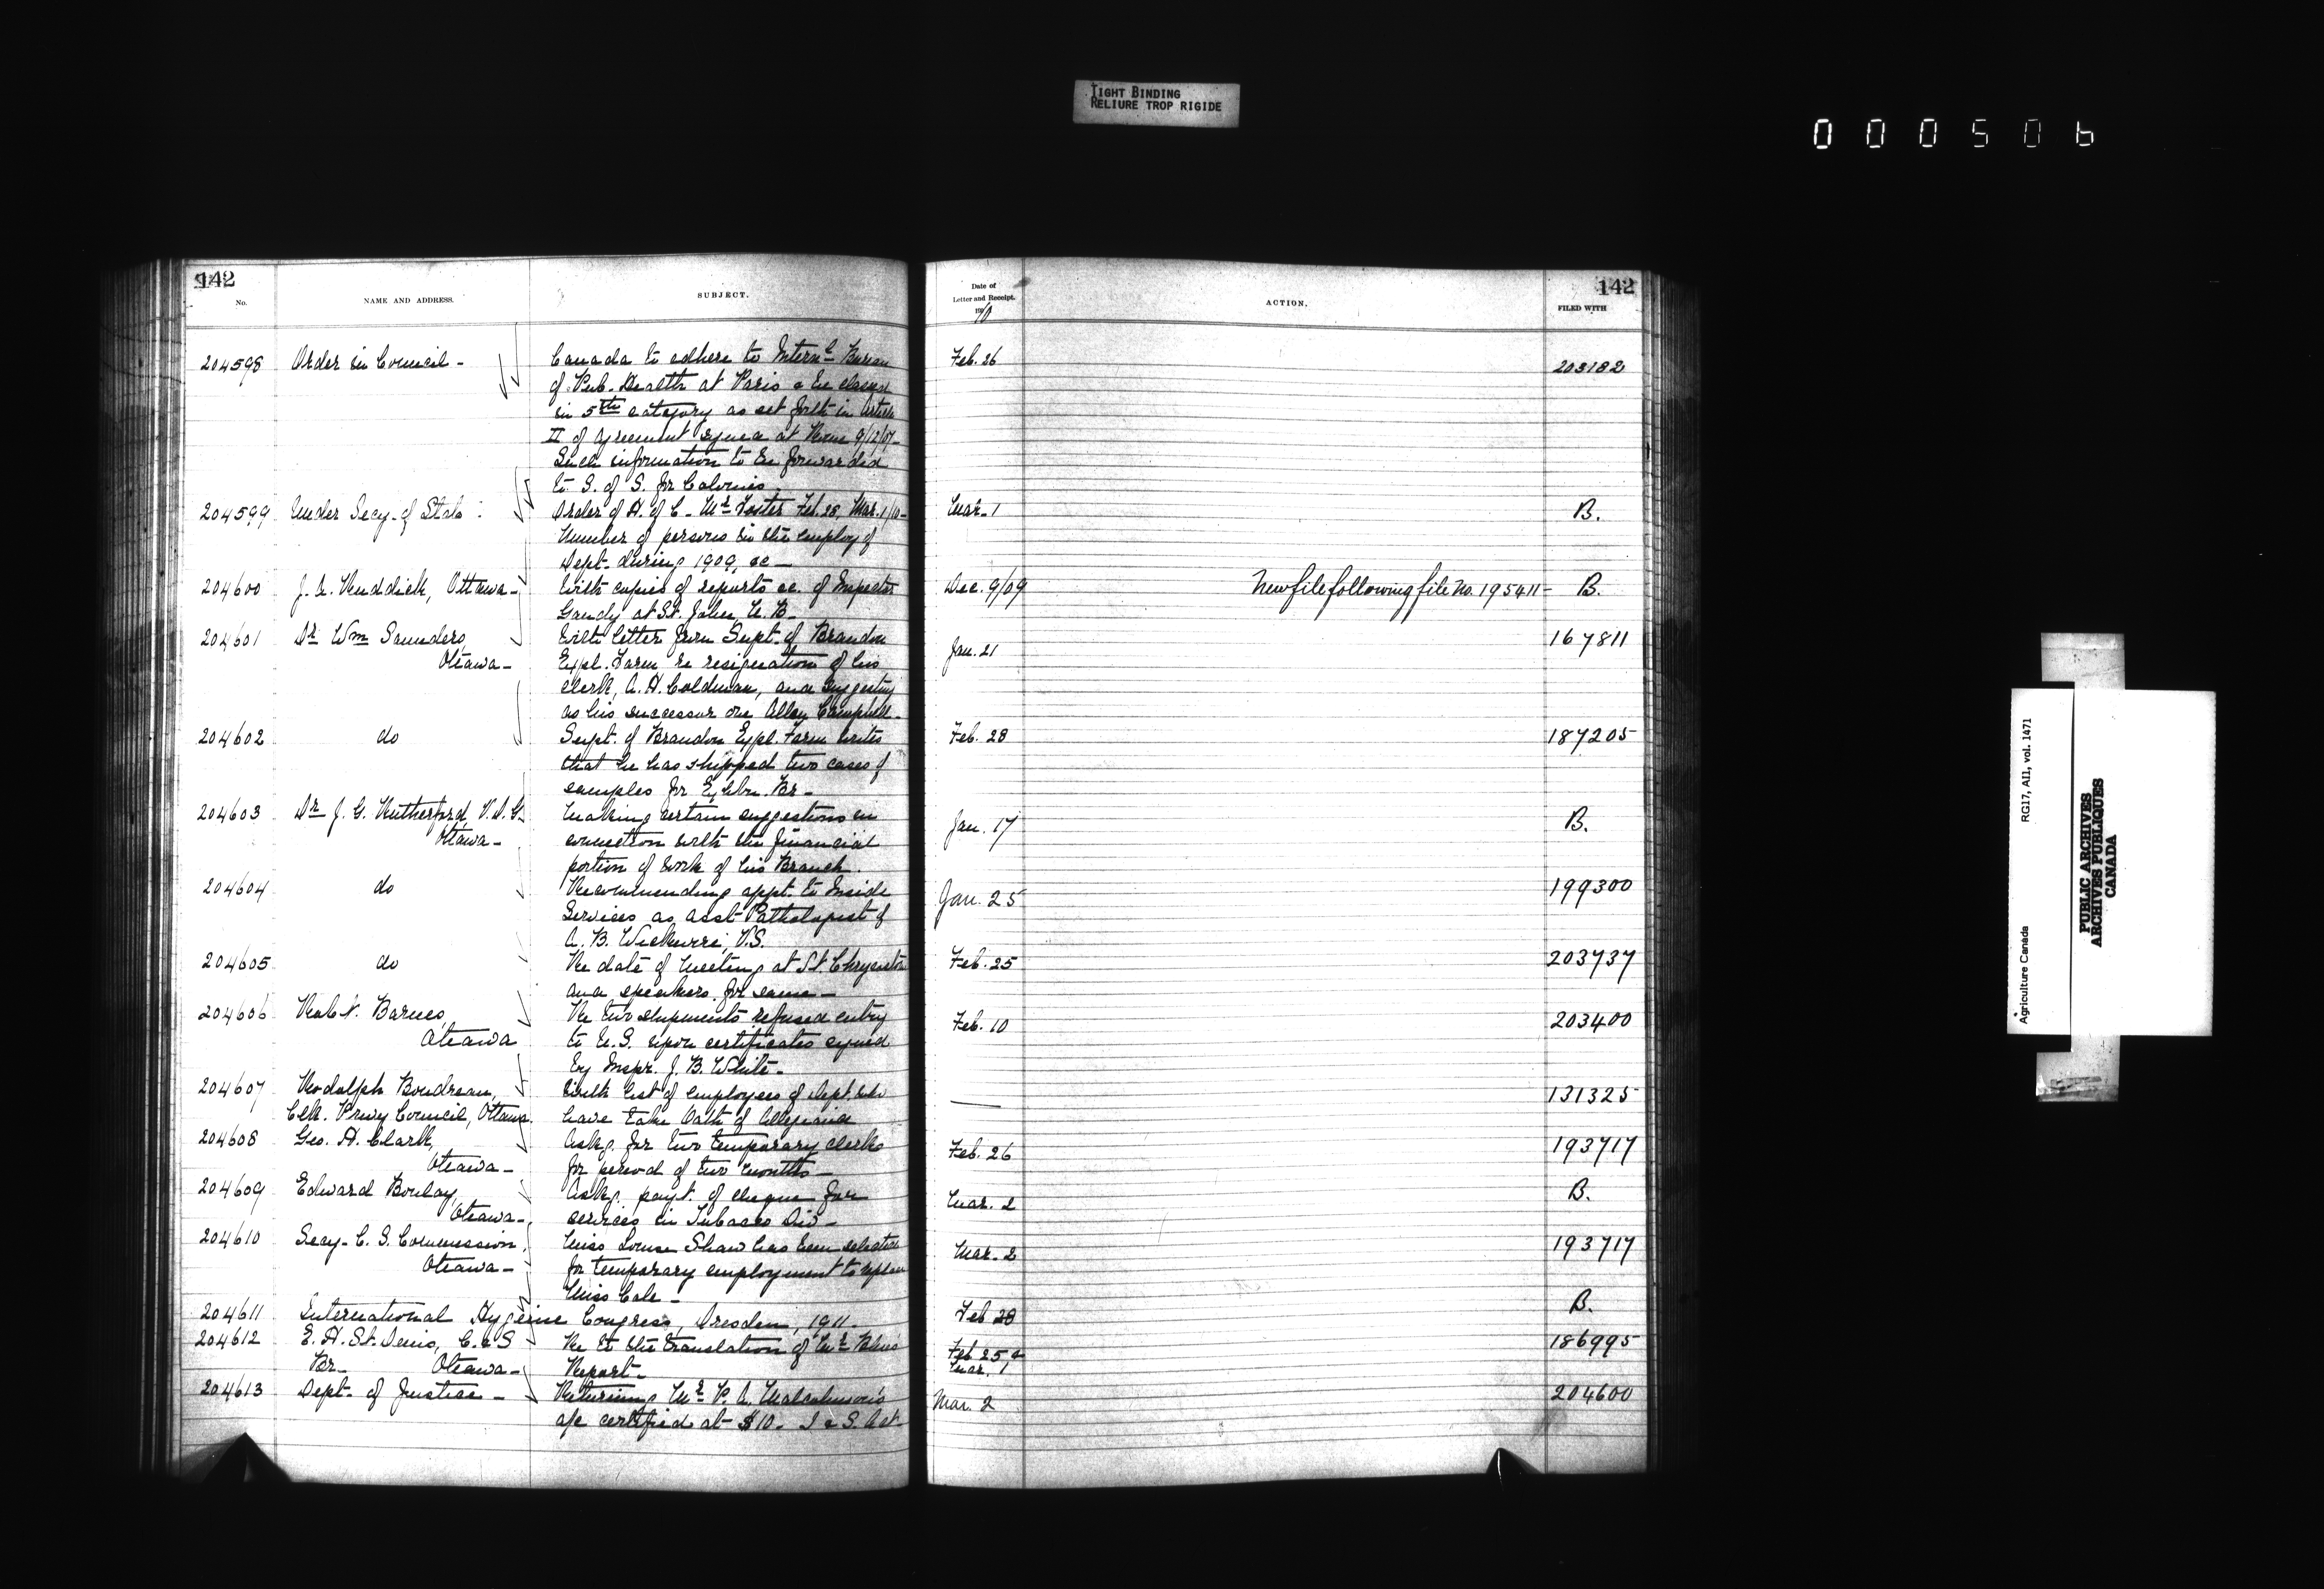 TIGHT BINDING
RELIURE TROP RIGIDE
000506
142
No.
NAME AND ADDRESS.
SUBJECT.
204598 Order in Council - Canada to adhere to Internl Bureau
of Pub. Health at Paris & be classed
in 5th category as set forth in Article
II of Agreement signed at Rome 9/12/07-
Such information to be forwarded
to S. of S. for Colonies.
204599 Under Secy. of State : Order of H. of C. - Mr Foster Feb. 28, Mar. 1/10 -
Number of persons in the employ of
Dept. during 1909, &c -
204600 J. A. Ruddick, Ottawa - With copies of reports &c. of Inspector
Gandy at St. John, N. B. -
204601 Dr Wm Saunders, With letter from Supt. of Brandon
Ottawa - Expl. Farm re resignation of his
clerk, A. H. Coldman, and suggesting
as his successor one Alley Campbell -
204602 do Supt. of Brandon Expl. Farm writes
that he has shipped two cases of
samples for Exhbn. Br -
204603 Dr J. G. Rutherford, V. D. G. Making certain suggestions in
Ottawa - connection with the financial
portion of work of his Branch.
204604 do Recommending appt. to Inside
Services as asst Pathologist of
A. B. Wickware, V.S.
204605 do Re date of meeting at St. Chrysostom
and speakers for same -
204606 Robt. Barnes, Re two shipments refused entry
Ottawa to U.S. upon certificates signed
by Inspr. J. B. White -
204607 Rodolph Boudreau, With list of employees of Dept. who
Clk. Privy Council, Ottawa. have take Oath of Allegiance
204608 Geo. H. Clark, Askg. for two temporary clerks
Ottawa - for period of two months -
204609 Edward Boulay, Askg. payt. of cheque for
Ottawa - services in Tobacco Div -
204610 Secy - C. S. Commission, Miss Louise Shaw has been selected
Ottawa - for temporary employment to replace
Miss Cale -
204611 International Hygiene Congress, Dresden, 1911.
204612 E. H. St. Denis, C. & S Re to the translation of Mr
Br - Ottawa - Report -
204613 Dept. of Justice - Returning Mr P. A. Malcolmson's
a/c certified at $10 - I & S. Act
142
Date of
Letter and Receipt.
1910
ACTION.
FILED WITH
Feb. 26 203182
Mar. 1 B.
Dec. 9/09 New file following file No. 195411 - B.
Jan. 21 167811
Feb. 28 187205
Jan. 17 B.
Jan. 25 199300
Feb. 25 203737
Feb. 10 203400
— 131325
Feb. 26 193717
Mar. 2 B.
Mar. 2 193717
Feb 28 B.
Feb 25, & 186995
Mar. 1
Mar. 2 204600
Agriculture Canada RG17, AII, vol. 1471
PUBLIC ARCHIVES
ARCHIVES PUBLIQUES
CANADA